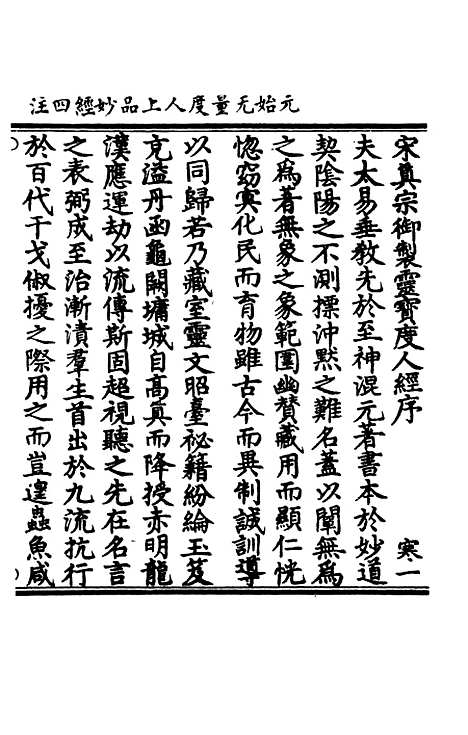 元始无量度人上品妙經四注
宋真宗御製靈寶度人經序 寒一
夫太易垂教先於至神混元著書本於妙道
契陰陽之不測標沖默之難名蓋以闡無爲
之爲著無象之象範圍幽賛藏用而顯仁恍
惚窈冥化民而育物雖古今而異制誠訓導
以同歸若乃藏室靈文昭臺祕籍紛綸玉笈
充溢丹函龜闕墉城自高真而降授赤明龍
漢應運劫以流傳斯固超視聽之先在名言
之表弼成至治漸漬羣生首出於九流抗行
於百代干戈俶擾之際用之而豈遑蟲魚咸